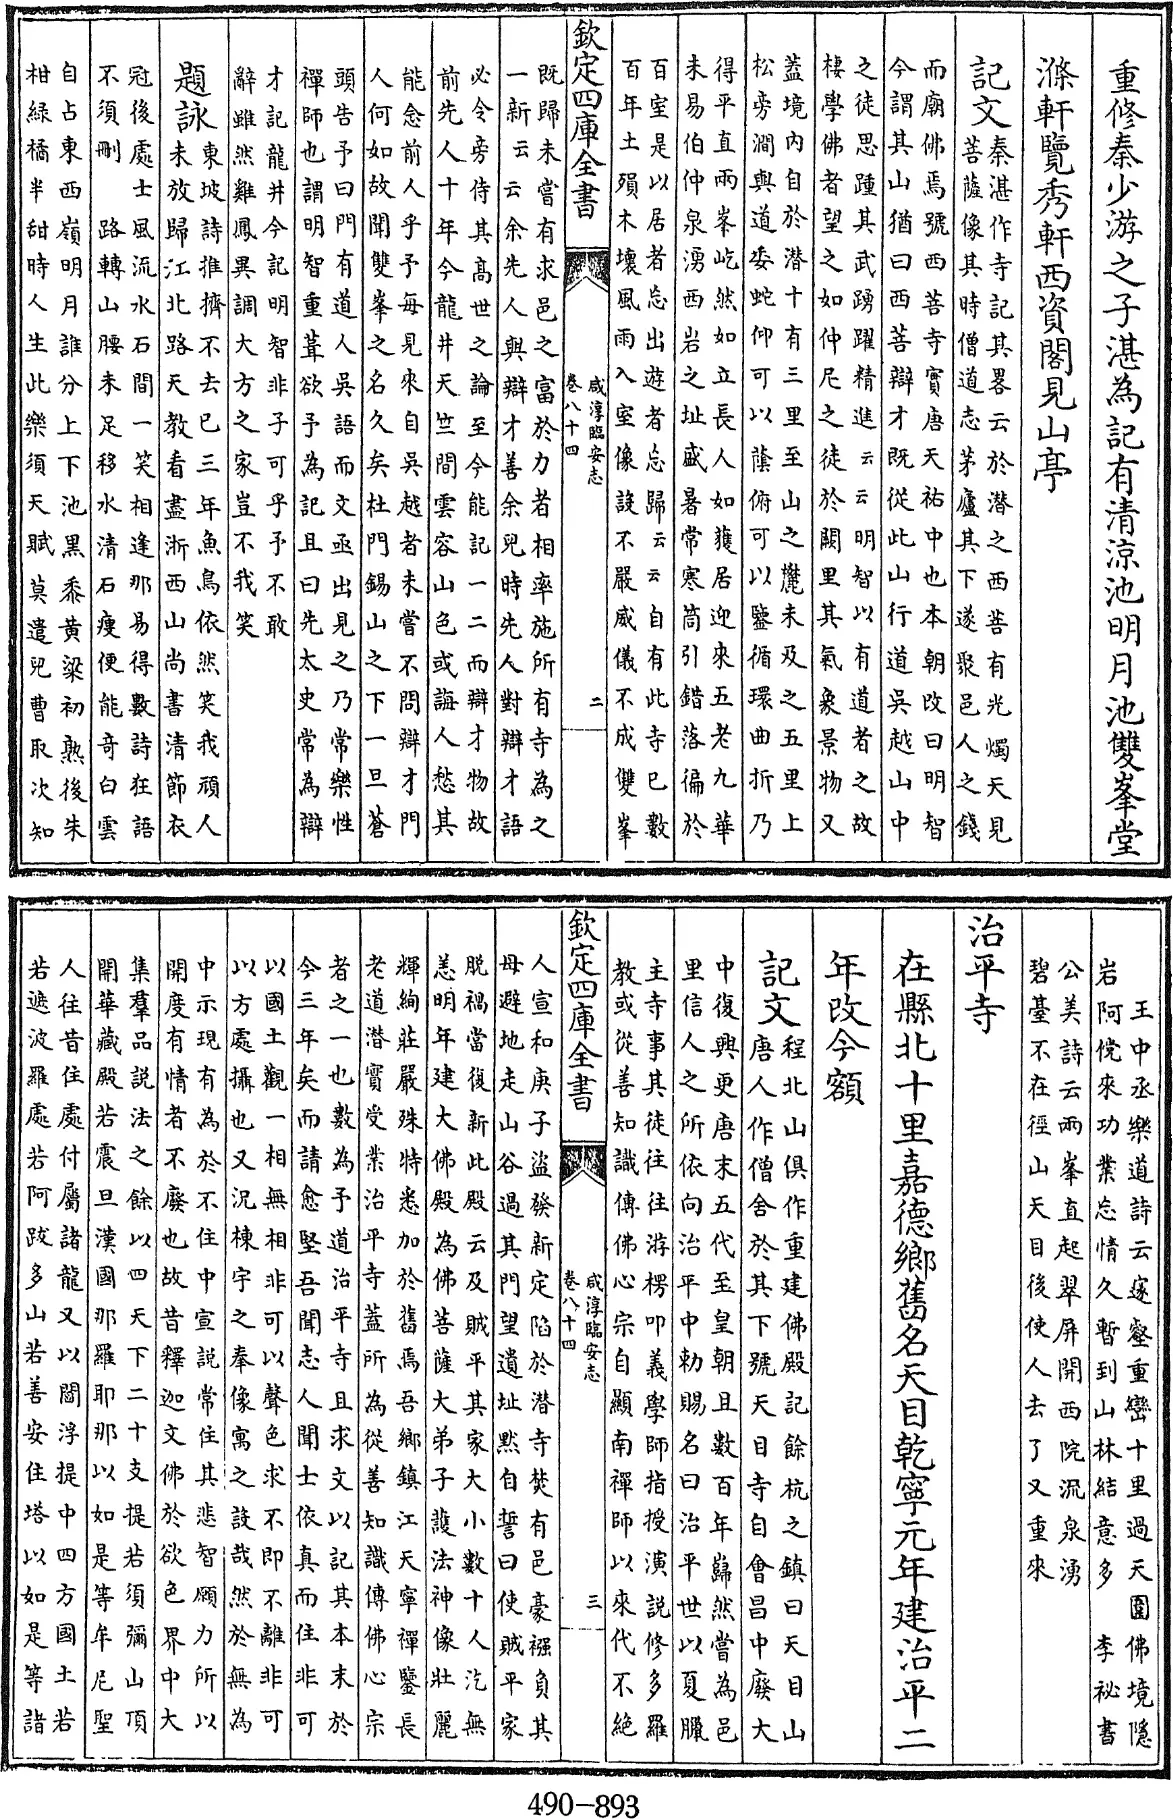 重修秦少游之子湛為記有清涼池明月池雙峯堂
滌軒覽秀軒西資閣見山亭
記文
秦湛作寺記其畧云於潛之西菩有光燭天見
菩薩像其時僧道志茅廬其下遂聚邑人之錢
而廟佛焉號西菩寺實唐天祐中也本朝改曰明智
今謂其山猶曰西菩辯才既從此山行道吳越山中
之徒思踵其武踴躍精進云云明智以有道者之故
棲學佛者望之如仲尼之徒於闕里其氣象景物又
蓋境內自於潛十有三里至山之麓未及之五里上
松旁澗輿道委蛇仰可以蔭俯可以鑒循環曲折乃
得平直兩峯屹然如立長人如獲居迎來五老九華
未易伯仲泉湧西岩之址盛暑常寒筒引錯落徧於
百室是以居者忘出遊者忘歸云云自有此寺已數
百年土殞木壞風雨入室像設不嚴威儀不成雙峯
欽定四庫全書
咸淳臨安志
卷八十四
二
既歸未嘗有求邑之富於力者相率施所有寺為之
一新云余先人與辯才善余兒時先人對辯才語
必令旁侍其高世之論至今能記一二而辯才物故
前先人十年今龍井天竺間雲容山色或誨人愁其
能念前人乎予每見來自吳越者未嘗不問辯才門
人何如故聞雙峯之名久矣杜門錫山之下一旦蒼
頭告予曰門有道人吳語而文亟出見之乃常樂性
禪師也謂明智重葺欲予為記且曰先太史常為辯
才記龍井今記明智非子可乎予不敢
辭雖然雞鳳異調大方之家豈不我笑
題詠
東坡詩推擠不去已三年魚鳥依然笑我頑人
未放歸江北路天教看盡浙西山尚書清節衣
冠後處士風流水石間一笑相逢那易得數詩狂語
不須刪　路轉山腰未足移水清石瘦便能奇白雲
自占東西嶺明月誰分上下池黑黍黃粱初熟後朱
柑綠橘半甜時人生此樂須天賦莫遣兒曹取次知
王中丞樂道詩云邃壑重巒十里過天圍佛境隱
岩阿儻來功業忘情久暫到山林結意多　李祕書
公美詩云兩峯直起翠屏開西院流泉湧
碧臺不在徑山天目後使人去了又重來
治平寺
在縣北十里嘉德鄉舊名天目乾寧元年建治平二
年改今額
記文
程北山俱作重建佛殿記餘杭之鎮曰天目山
唐人作僧舍於其下號天目寺自會昌中廢大
中復興更唐末五代至皇朝且數百年巋然當為邑
里信人之所依向治平中勅賜名曰治平世以夏臘
主寺事其徒往往游楞叩義學師指授演説修多羅
教或從善知識傳佛心宗自顯南禪師以來代不絶
欽定四庫全書
咸淳臨安志
卷八十四
三
人宣和庚子盜發新定陷於潛寺焚有邑豪襁負其
母避地走山谷過其門望遺址默自誓曰使賊平家
脱禍當復新此殿云及賊平其家大小數十人汔無
恙明年建大佛殿為佛菩薩大弟子護法神像壯麗
輝絢莊嚴殊特悉加於舊焉吾鄉鎮江天寧禪鑒長
老道潛實受業治平寺蓋所為從善知識傳佛心宗
者之一也數為予道治平寺且求文以記其本末於
今三年矣而請愈堅吾聞志人聞士依真而住非可
以國土觀一相無相非可以聲色求不即不離非可
以方處攝也又況棟宇之奉像寓之設哉然於無為
中示現有為於不住中宣説常住其悲智願力所以
開度有情者不廢也故昔釋迦文佛於欲色界中大
集羣品説法之餘以四天下二十支提若須彌山頂
開華藏殿若震旦漢國那羅耶那以如是等牟尼聖
人往昔住處付屬諸龍又以閻浮提中四方國土若
若遮波羅處若阿跋多山若善安住塔以如是等諸
490-893